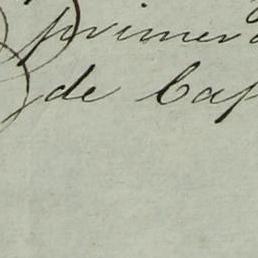 primera
de Cap